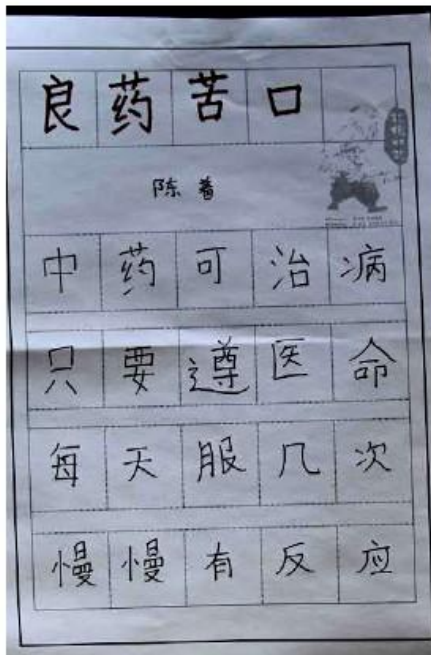 良药苦口
陈着
中药可治病
只要遵医命
每天服几次
慢慢有反应